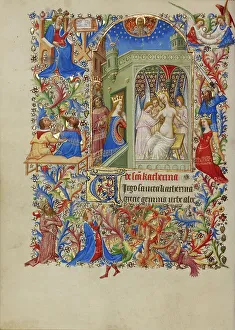 De sca katherina
Virgo sancta katherina
grecie gemma urbe alex